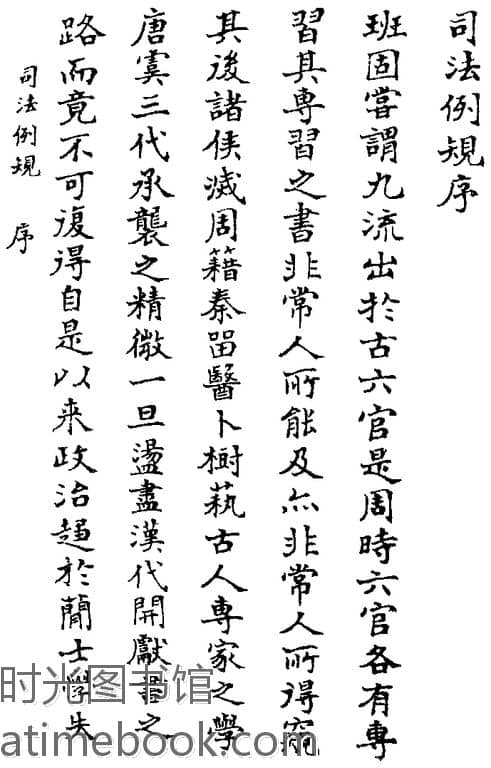 司法例規序
班固嘗謂九流出於古六官是周時六官各有專
習其專習之書非常人所能及亦非常人所得窺
其後諸侯滅周籍秦留醫卜樹蓺古人專家之學
唐虞三代承襲之精微一旦盪盡漢代開獻書之
路而竟不可復得自是以来政治趋於簡士學失
司法例規 序
时光图书馆
atimebook.com